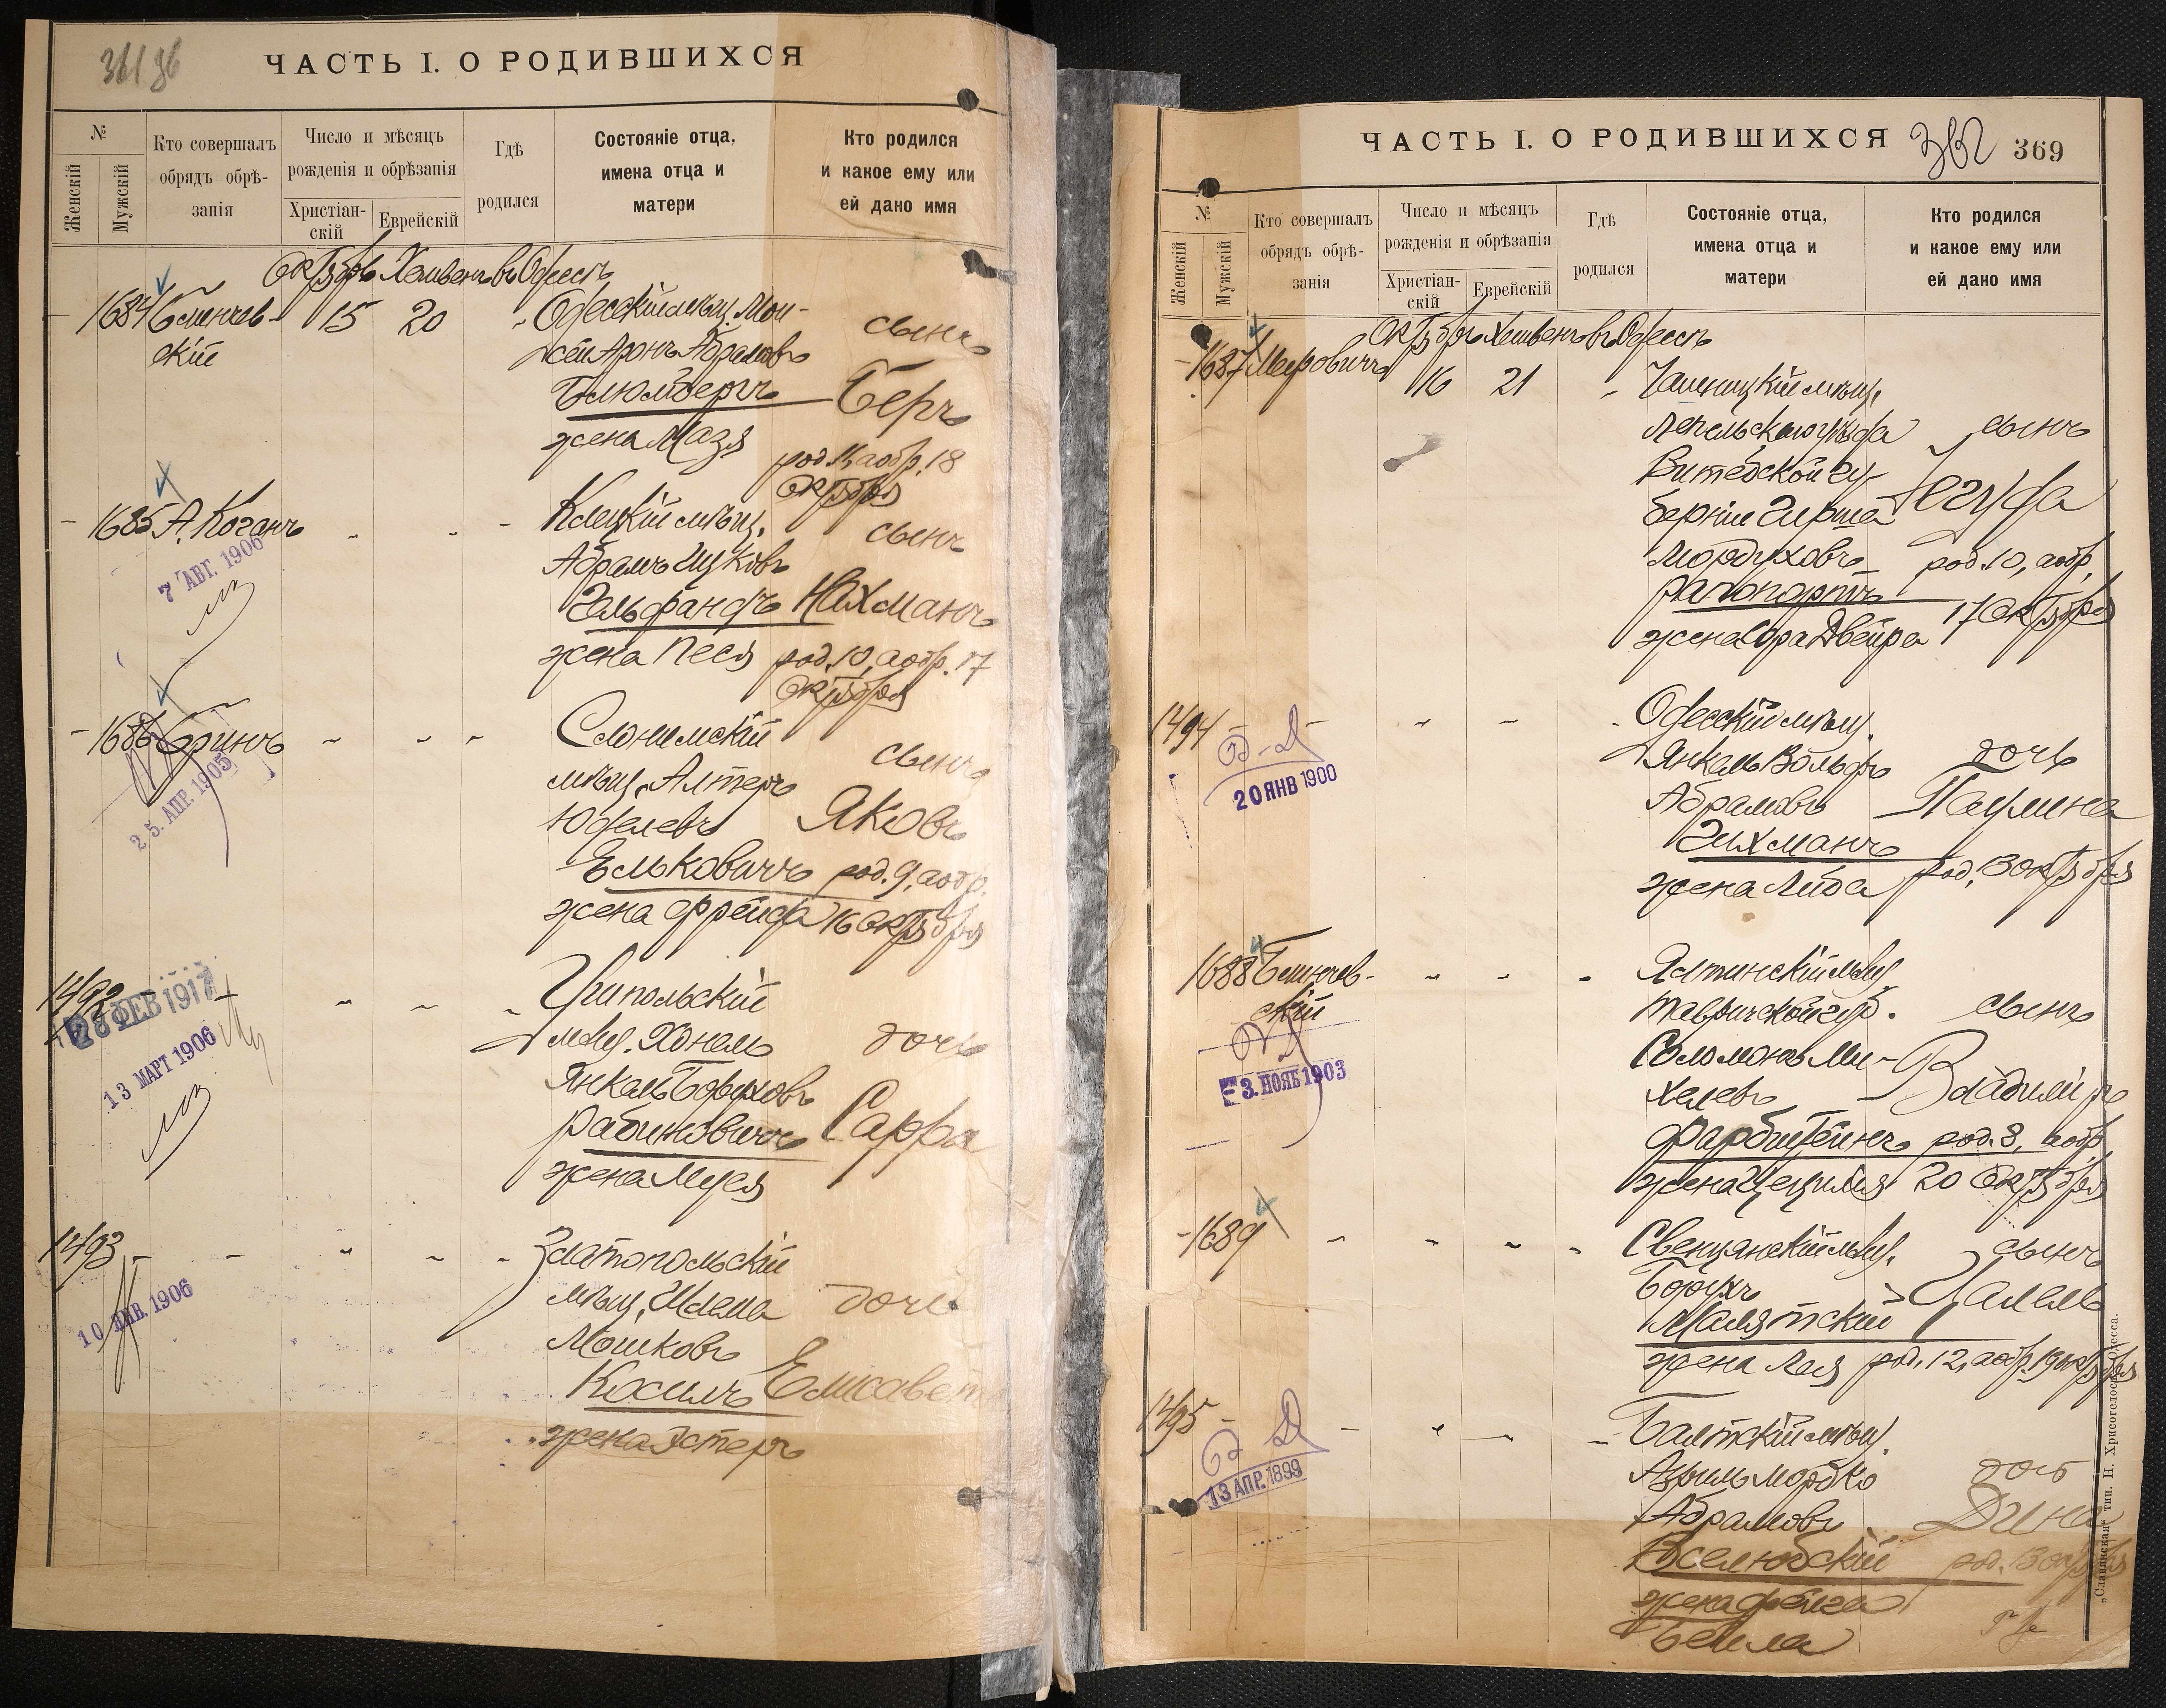 361 зв
ЧАСТЬ I. О РОДИВШИХСЯ
№
Женскій
Мужскій
Кто совершалъ обрядъ обрѣ-занія
Число и мѣсяцъ рожденія и обрѣзанія
Христіан-скій
Еврейскій
Гдѣ родился
Состояніе отца, имена отца и матери
Кто родился и какое ему или ей дано имя
Октябрь Хешвенъ въ Одессѣ
1684 Блинчев-
скій
15 20
Одесскій мѣщ. Мои-
сей Аронъ Абрамовъ
Блюмбергъ
жена Мазя
сынъ
Беръ
род. 11, а обр. 18
Октября
1685 А. Коганъ
7 АВГ. 1906
Клецкій мѣщ.
Абрамъ Ицковъ
Гальфандъ
жена Песя
сынъ
Нахманъ
род. 10, а обр. 17
Октября
1686 Бринъ
25. АПР. 1905
Слонимскій
мѣщ. Алтеръ
Юделевъ
Ельковичъ
жена Фрейда
сынъ
Яковъ
род. 9, а обр.
16 Октября
1492
28 ФЕВ 1917
13 МАРТ 1906
Трипольскій
мѣщ. Хонель
Янкель Борухов
Рабиновичъ
жена Муся
дочь
Сарра
1493
10 ЯНВ. 1906
Златопольскій
мѣщ. Шлема
Мошковъ
Косилъ
жена Эстеръ
дочь
Елисавета
ЧАСТЬ I. О РОДИВШИХСЯ
362
369
№
Женскій
Мужскій
Кто совершалъ обрядъ обрѣ-занія
Число и мѣсяцъ рожденія и обрѣзанія
Христіан-скій
Еврейскій
Гдѣ родился
Состояніе отца, имена отца и матери
Кто родился и какое ему или ей дано имя
Октябрь Хешвенъ въ Одессѣ
1687 Меировичъ
16 21
Чашницкій мѣщ.
Лепельскаго уѣзда
Витебской гу-
берніи Гирша
Мордуховъ
Рапопортъ
жена Сора Двейра
сынъ
Іегуда
род. 10, а обр.
17 Октября
1494
20 ЯНВ 1900
Одесскій мѣщ.
Янкель Вольфъ
Абрамовъ
Гихманъ
жена Либа
дочь
Паулина
род. 13 октября
1688 Блинчев-
скій
3. НОЯБ 1903
Ялтинскій мѣщ.
Таврической губ.
Соломонъ Ми-
хелевъ
Фарбштейнъ
жена Цецилія
сынъ
Владиміръ
род. 8, а обр.
20 Октября
1689
Свенцянскій мѣщ.
Борухъ
Малятскій
жена Лея
сынъ
Цалель
род. 12, а обр. 19 октября
1495
13 АПР. 1899
Балтскій мѣщ.
Азриль Мордко
Абрамовъ
Вселюбскій
жена Фейга
Бейла
дочь
Дина
род. 13 октября
„Славянская“ тип. Н. Хрисогелосъ, Одесса.